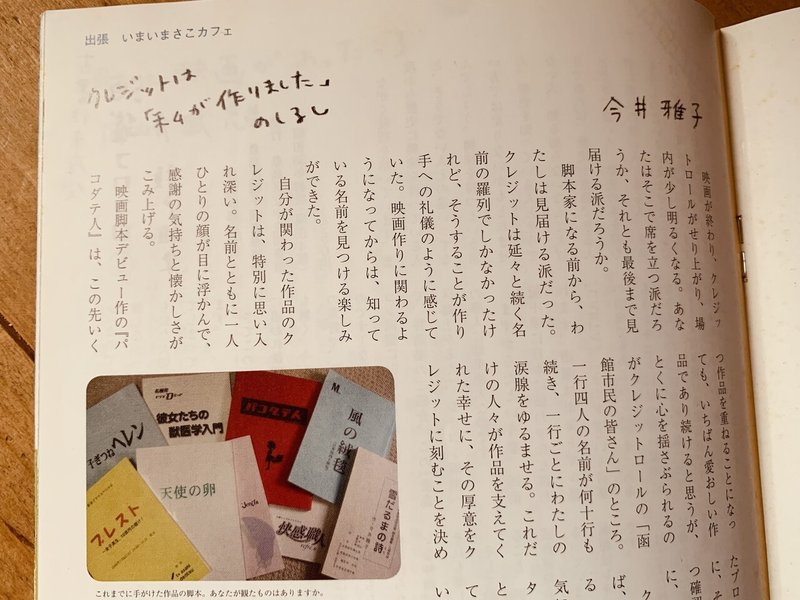 出張 いまいまさこカフェ
クレジットは
「私が作りました」
のしるし
今井雅子
映画が終わり、クレジッ
トロールがせり上がり、場
内が少し明るくなる。あな
たはそこで席を立つ派だろ
うか、それとも最後まで見
届ける派だろうか。
脚本家になる前から、わ
たしは見届ける派だった。
クレジットは延々と続く名
前の羅列でしかなかったけ
れど、そうすることが作り
手への礼儀のように感じて
いた。映画作りに関わるよ
うになってからは、知って
いる名前を見つける楽しみ
ができた。
自分が関わった作品のク
レジットは、特別に思い入
れ深い。名前とともに一人
ひとりの顔が目に浮かんで、
感謝の気持ちと懐かしさが
こみ上げる。
映画脚本デビュー作の『パ
コダテ人』は、この先いく
つ作品を重ねることになっ
ても、いちばん愛おしい作
品であり続けると思うが、
とくに心を揺さぶられるの
がクレジットロールの「函
館市民の皆さん」のところ。
一行四人の名前が何十行も
続き、一行ごとにわたしの
涙腺をゆるませる。これだ
けの人々が作品を支えてく
れた幸せに、その厚意をク
レジットに刻むことを決め
たプロ
に、そ
つ確
に、
ク
ば、
る
気
タ
と
て
い
子ぎつねヘレン
彼女たちの
獣医学入門
パコダテ人
M.
風の絨毯
ブレスト
天使の卵
快感職人
雪だるまの詩
これまでに手がけた作品の脚本。あなたが観たものはありますか。